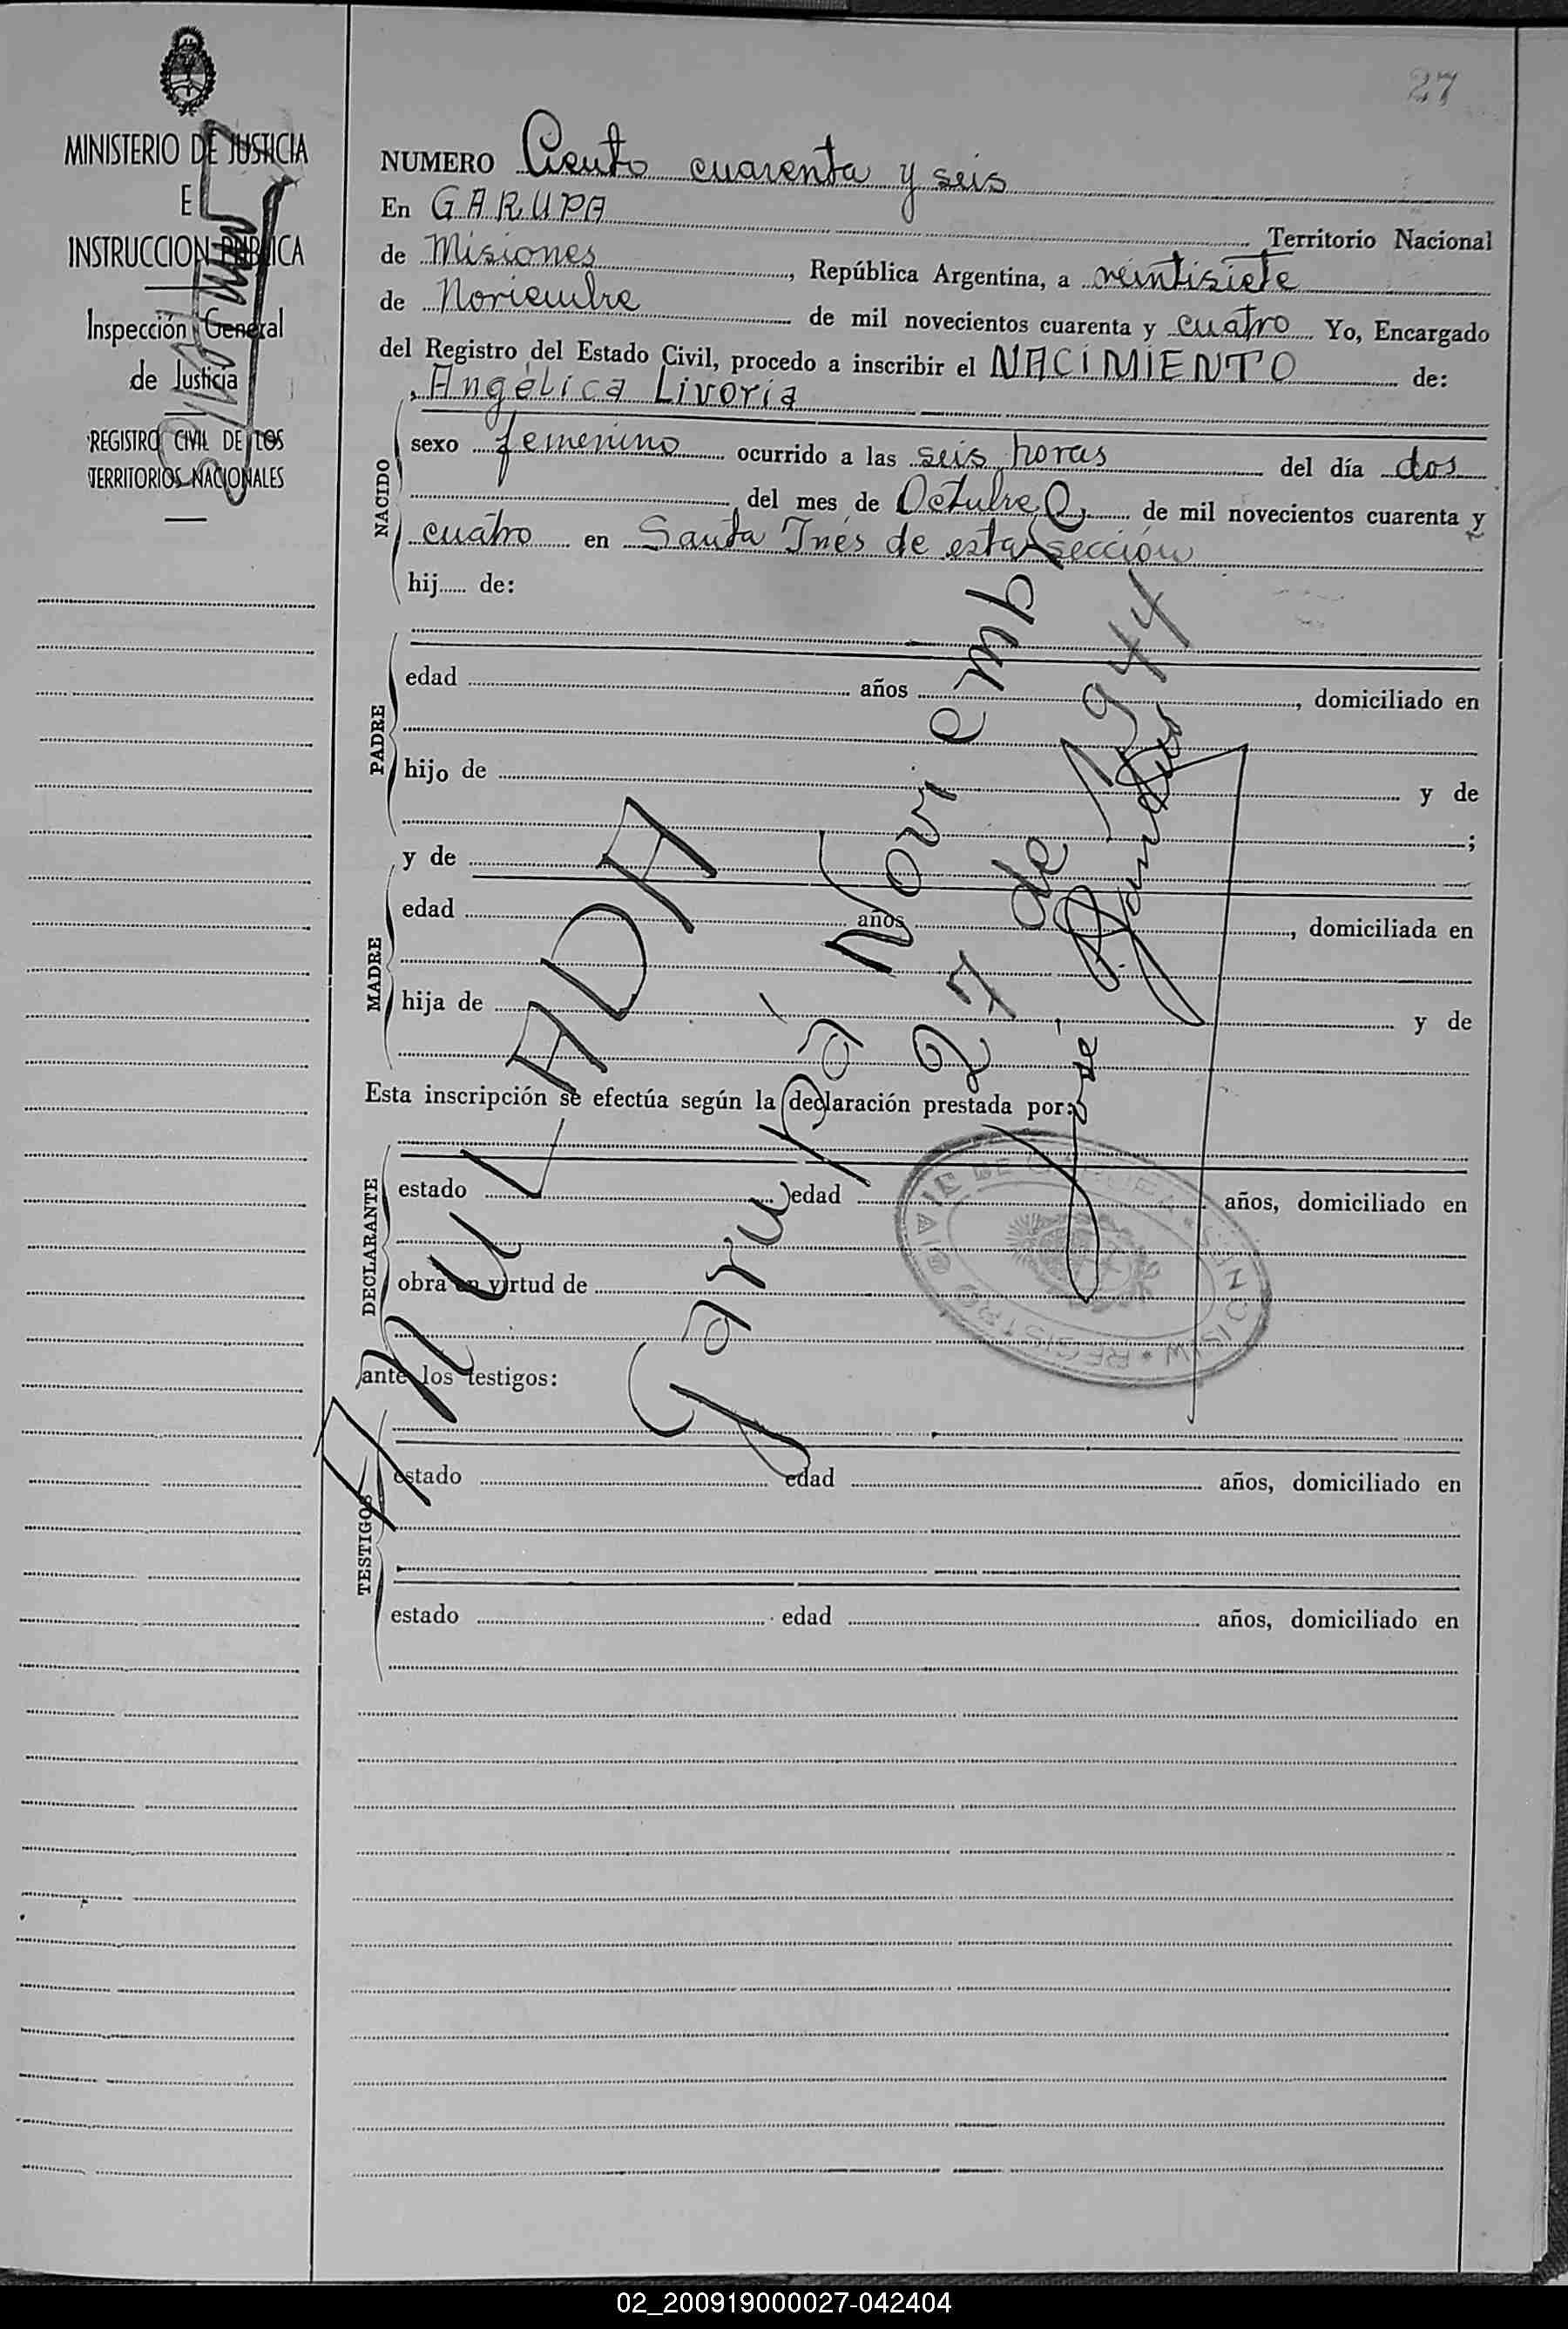 27
MINISTERIO DE JUSTICIA
E
INSTRUCCION PUBLICA
Inspección General
de Justicia
REGISTRO CIVIL DE LOS
TERRITORIOS NACIONALES
NUMERO Ciento cuarenta y seis
En GARUPA Territorio Nacional
de Misiones, República Argentina, a veintisiete
de Noviembre de mil novecientos cuarenta y cuatro Yo, Encargado
del Registro del Estado Civil, procedo a inscribir el NACIMIENTO de:
Angélica Livoria
NACIDO
sexo femenino ocurrido a las seis horas del día dos
del mes de Octubre de mil novecientos cuarenta y
cuatro en Santa Inés de esta sección
hij de:
PADRE
edad años, domiciliado en
hijo de y de
;
y de
MADRE
edad años, domiciliada en
hija de y de
Esta inscripción se efectúa según la declaración prestada por:
DECLARANTE
estado edad años, domiciliado en
obra en virtud de
ante los testigos:
TESTIGOS
estado edad años, domiciliado en
estado edad años, domiciliado en
ANULADA
Garupá Noviemb
27 de 1944
José
REGISTRO MISIONES
02_200919000027-042404